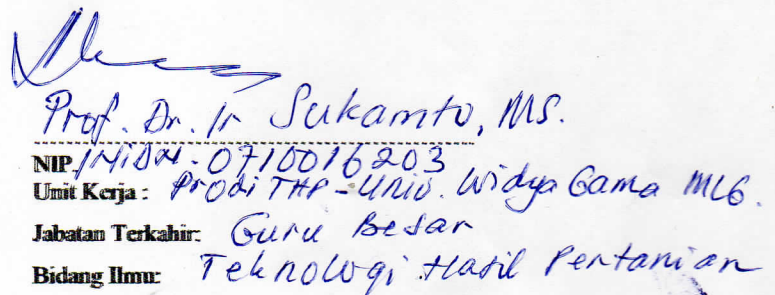 Prof. Dr. Ir Sukamto, MS.
NIP/NIDN. 0710016203
Unit Kerja : Prodi THP - Univ. Widya Gama MLG.
Jabatan Terkahir: Guru Besar
Bidang Ilmu: Teknologi Hasil Pertanian